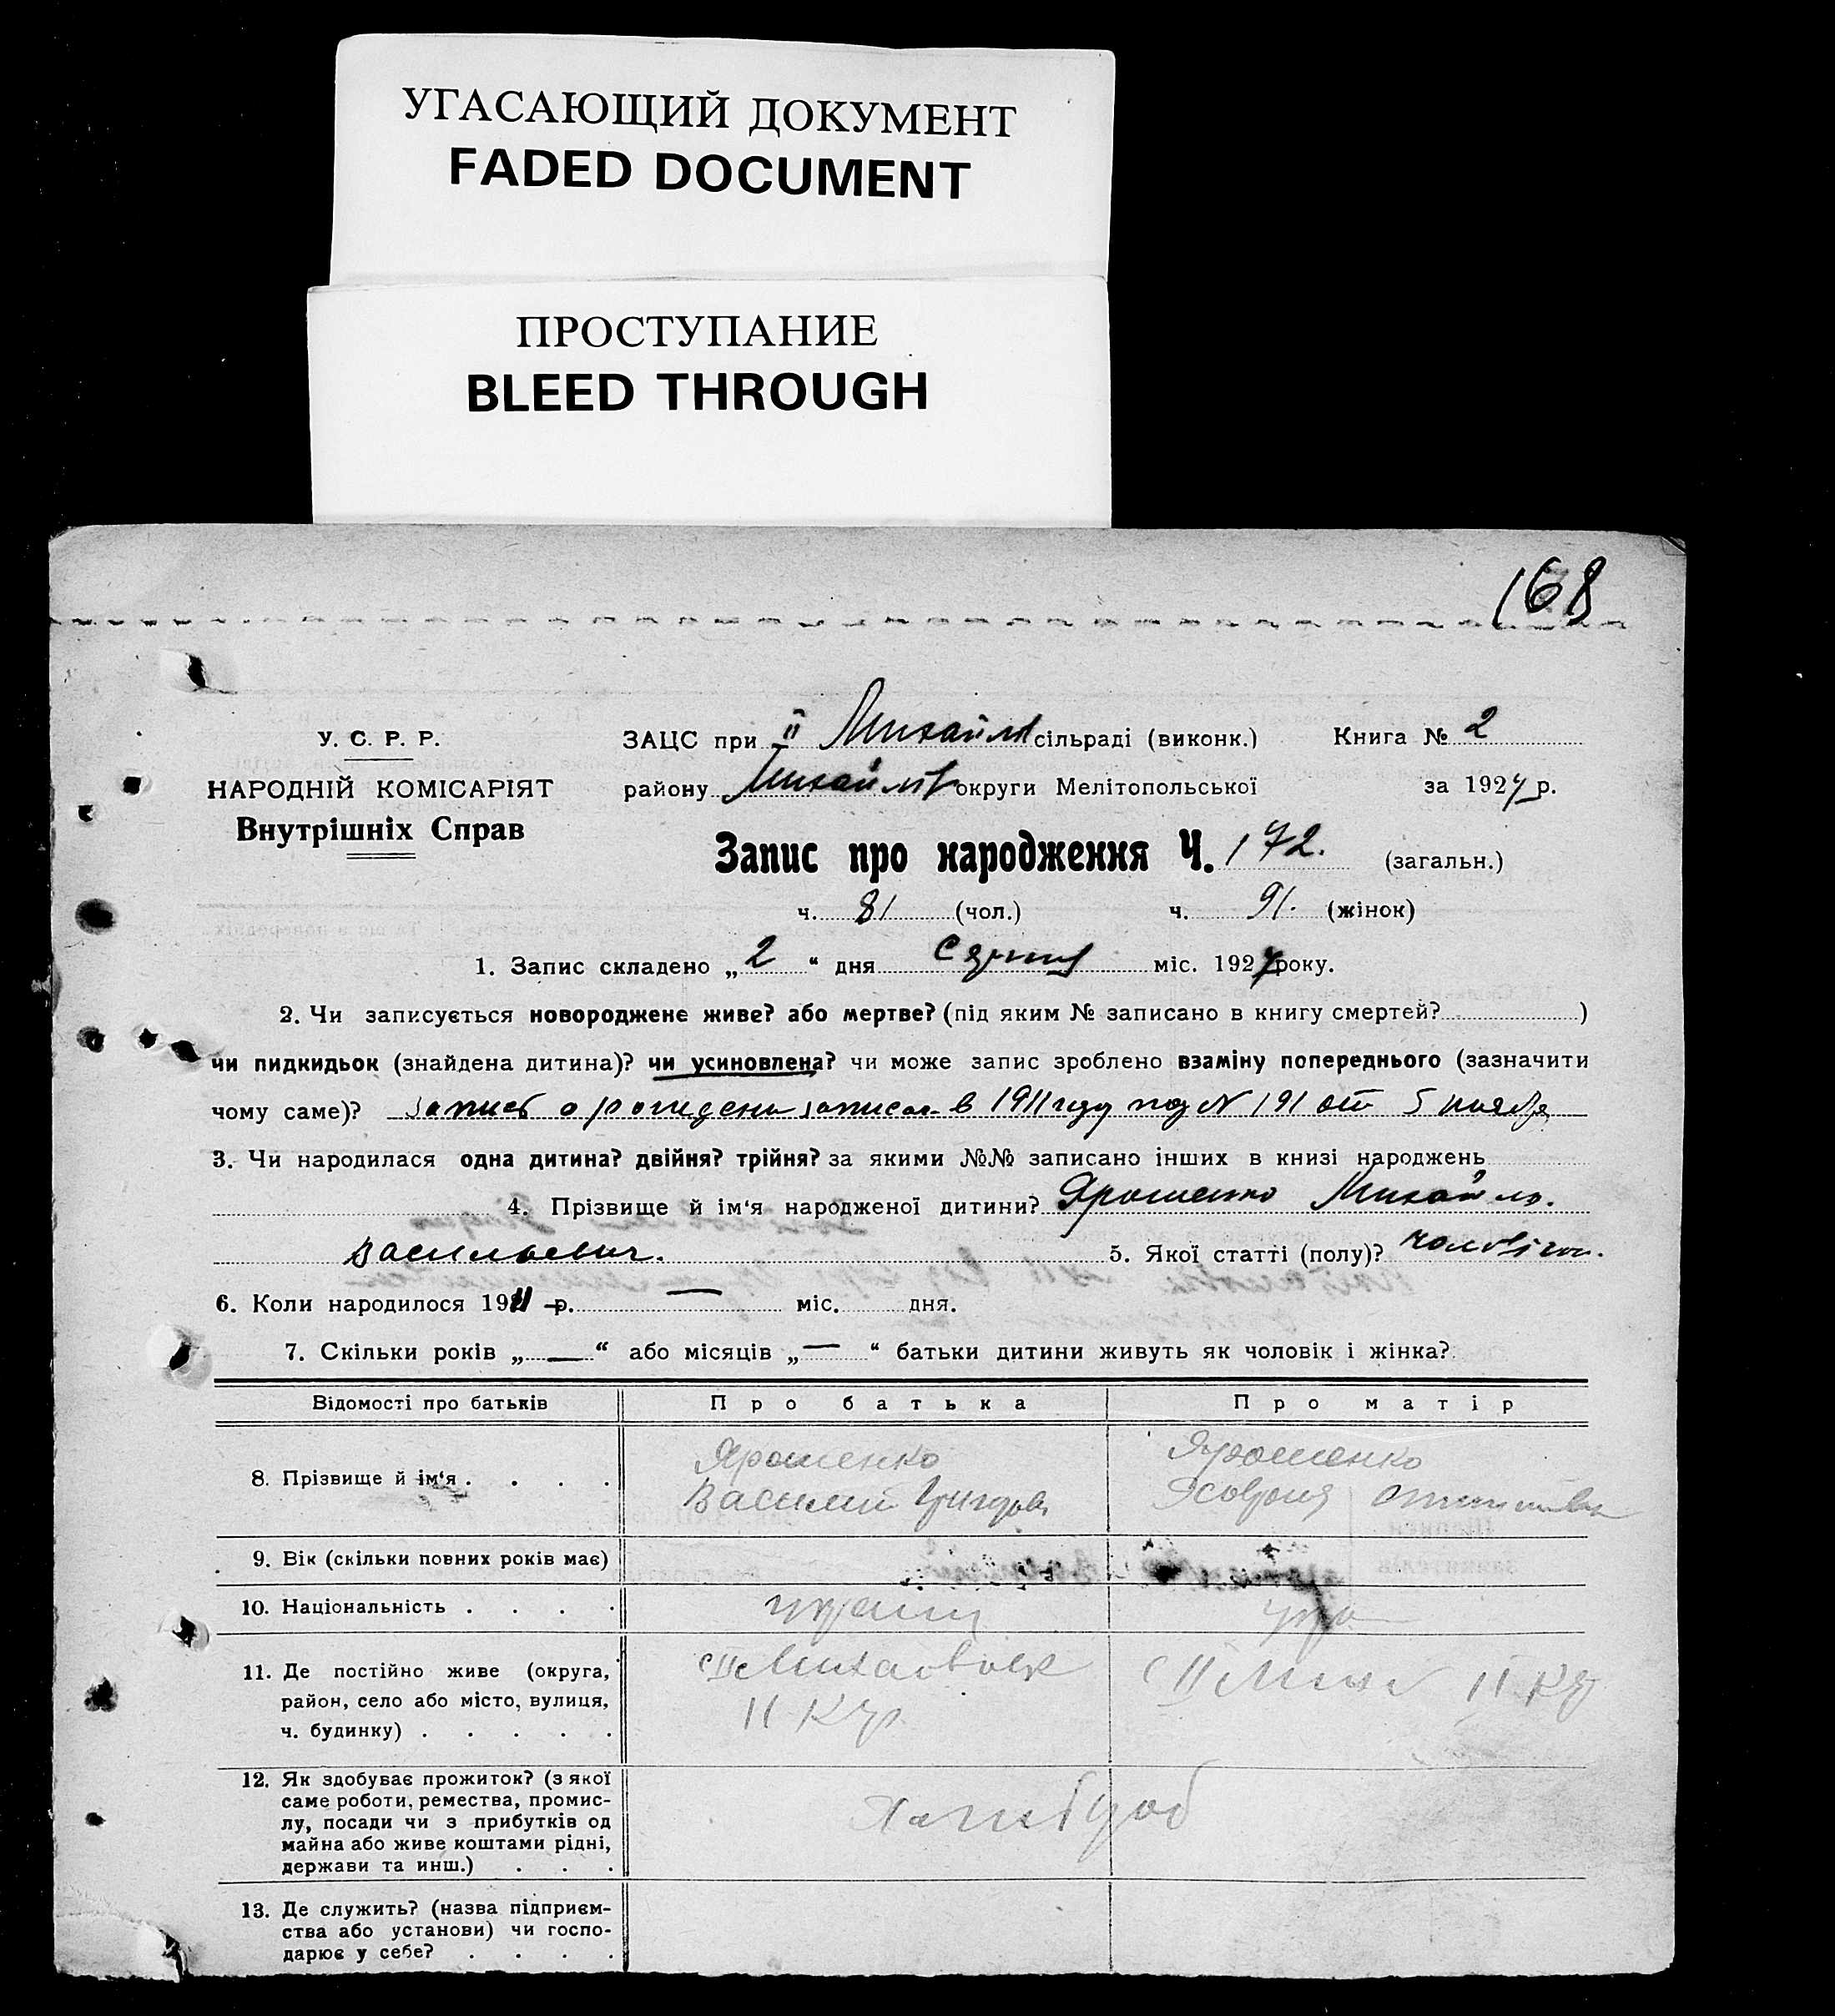 УГАСАЮЩИЙ ДОКУМЕНТ
FADED DOCUMENT
ПРОСТУПАНИЕ
BLEED THROUGH
168
У. С. Р. Р.
НАРОДНІЙ КОМІСАРІЯТ
Внутрішніх Справ
ЗАЦС при II Михайл сільраді (виконк.) Книга № 2
району Михайл округи Мелітопольської за 1927 р.
Запис про народження Ч. 172. (загальн.)
ч. 81 (чол.) ч. 91. (жінок)
1. Запис складено „ 2 “ дня міс. 1927 року.
2. Чи записується новороджене живе? або мертве? (під яким № записано в книгу смертей? )
чи пидкидьок (знайдена дитина)? чи усиновлена? чи може запис зроблено взаміну попереднього (зазначити
чому саме)? запись о рождени записан в 1911 году под N 191 от 5 ноября
3. Чи народилася одна дитина? двійня? трійня? за якими №№ записано інших в книзі народжень
4. Прізвище й ім‘я народженої дитини? Ярошенко Михайло.
Васильевич. 5. Якої статті (полу)?
6. Коли народилося 1911 р. — міс. дня.
7. Скільки років „ — “ або місяців „ — “ батьки дитини живуть як чоловік і жінка?
Відомості про батьків Про батька Про матір
8. Прізвище й ім‘я . . . . Ярошенко Василий Ярошенко
9. Вік (скільки повних років має)
10. Національність . . . . укр
11. Де постійно живе (округа,
район, село або місто, вулиця,
ч. будинку) . . . . .
12. Як здобуває прожиток? (з якої
саме роботи, ремества, промис-
лу, посади чи з прибутків од
майна або живе коштами рідні,
держави та инш.) . . .
13. Де служить? (назва підприєм-
ства або установи) чи госпо-
дарює у себе? . . . .